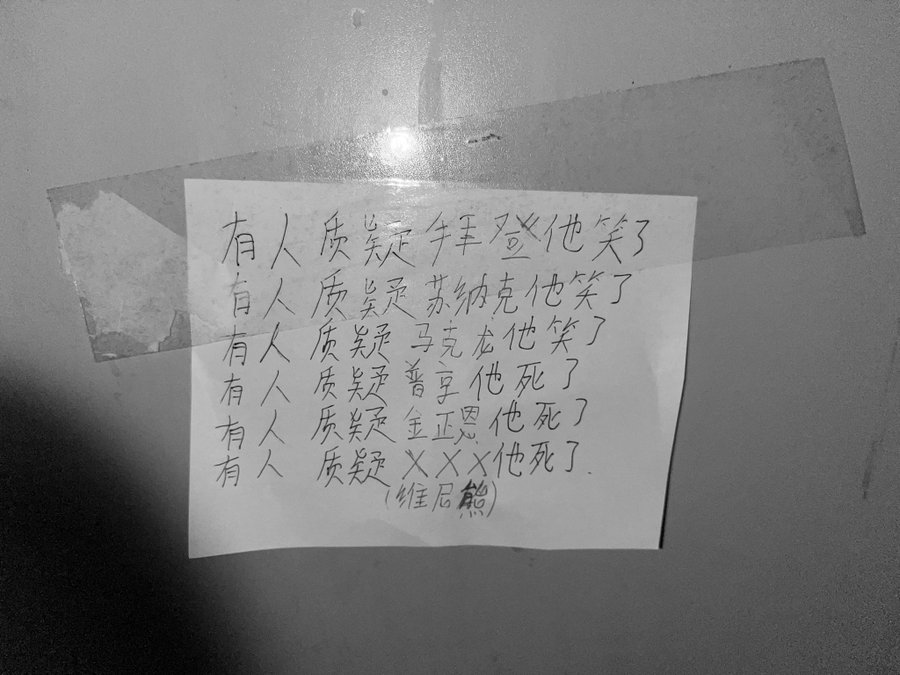 有人质疑拜登他笑了
有人质疑苏纳克他笑了
有人质疑马克龙他笑了
有人质疑普京他死了
有人质疑金正恩他死了
有人质疑XXX他死了.
(维尼熊)